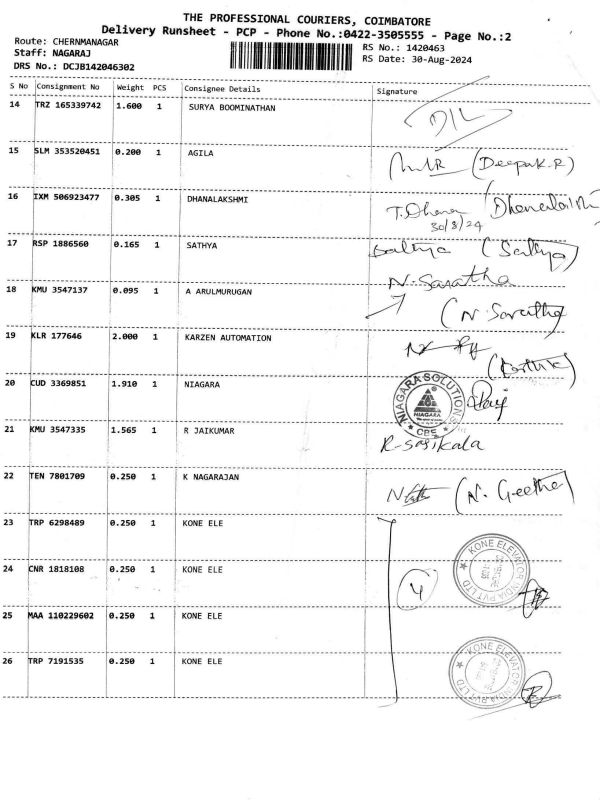 THE PROFESSIONAL COURIERS, COIMBATORE
Delivery Runsheet - PCP - Phone No.:0422-3505555 - Page No.:2
Route: CHERNMANAGAR
Staff: NAGARAJ
DRS No.: DCJB142046302
RS No.: 1420463
RS Date: 30-Aug-2024
S No Consignment No Weight PCS Consignee Details Signature
14 TRZ 165339742 1.600 1 SURYA BOOMINATHAN D/L
15 SLM 353520451 0.200 1 AGILA (Deepak.R)
16 IXM 506923477 0.305 1 DHANALAKSHMI T.Dhana (Dhanalaksh
30/8/24
17 RSP 1886560 0.165 1 SATHYA Sathya (Sathya)
18 KMU 3547137 0.095 1 A ARULMURUGAN N.Saratha
(N.Saratha)
19 KLR 177646 2.000 1 KARZEN AUTOMATION (Karthik)
20 CUD 3369851 1.910 1 NIAGARA NIAGARA SOLUTIONS
NIAGARA
CBE
21 KMU 3547335 1.565 1 R JAIKUMAR R-sasikala
22 TEN 7801709 0.250 1 K NAGARAJAN (N. Geetha)
23 TRP 6298489 0.250 1 KONE ELE
24 CNR 1818108 0.250 1 KONE ELE 4 KONE ELEVATOR INDIA PVT LTD
25 MAA 110229602 0.250 1 KONE ELE
26 TRP 7191535 0.250 1 KONE ELE KONE ELEVATOR INDIA PVT LTD